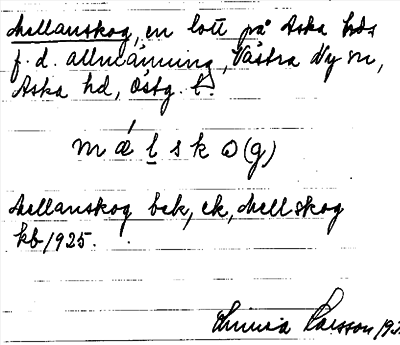 Mellanskog, en lott på Aska hds
f. d. allmänning, Västra Ny sn,
Aska hd, Östg. l.
m ǽ l s k ω (g)
Mellanskog bek, ek, Mellskog
kb 1925.
Larsson 192